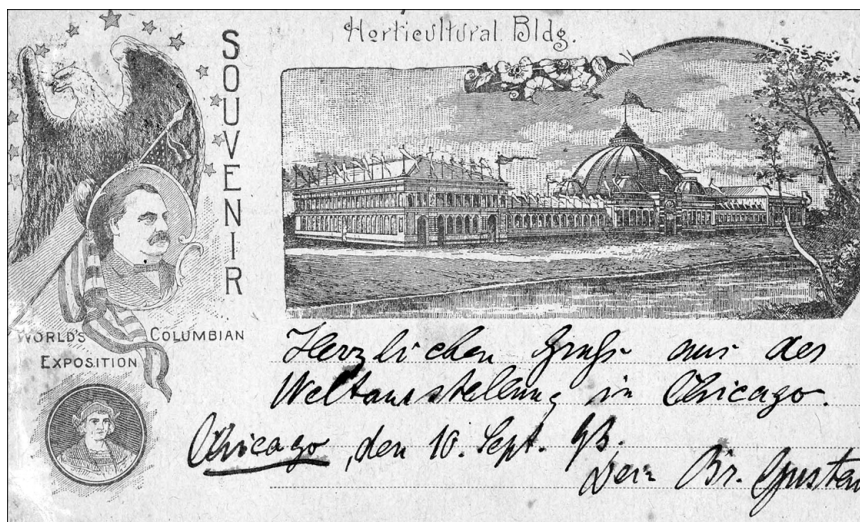 Horticultural Bldg.
SOUVENIR
WORLD'S COLUMBIAN
EXPOSITION
Herzlichen Gruß aus der
Weltausstellung in Chicago.
Chicago, den 10. Sept. 93.
Dein Br. Gustav